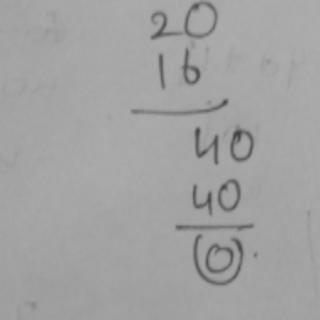 20
16
40
40
0